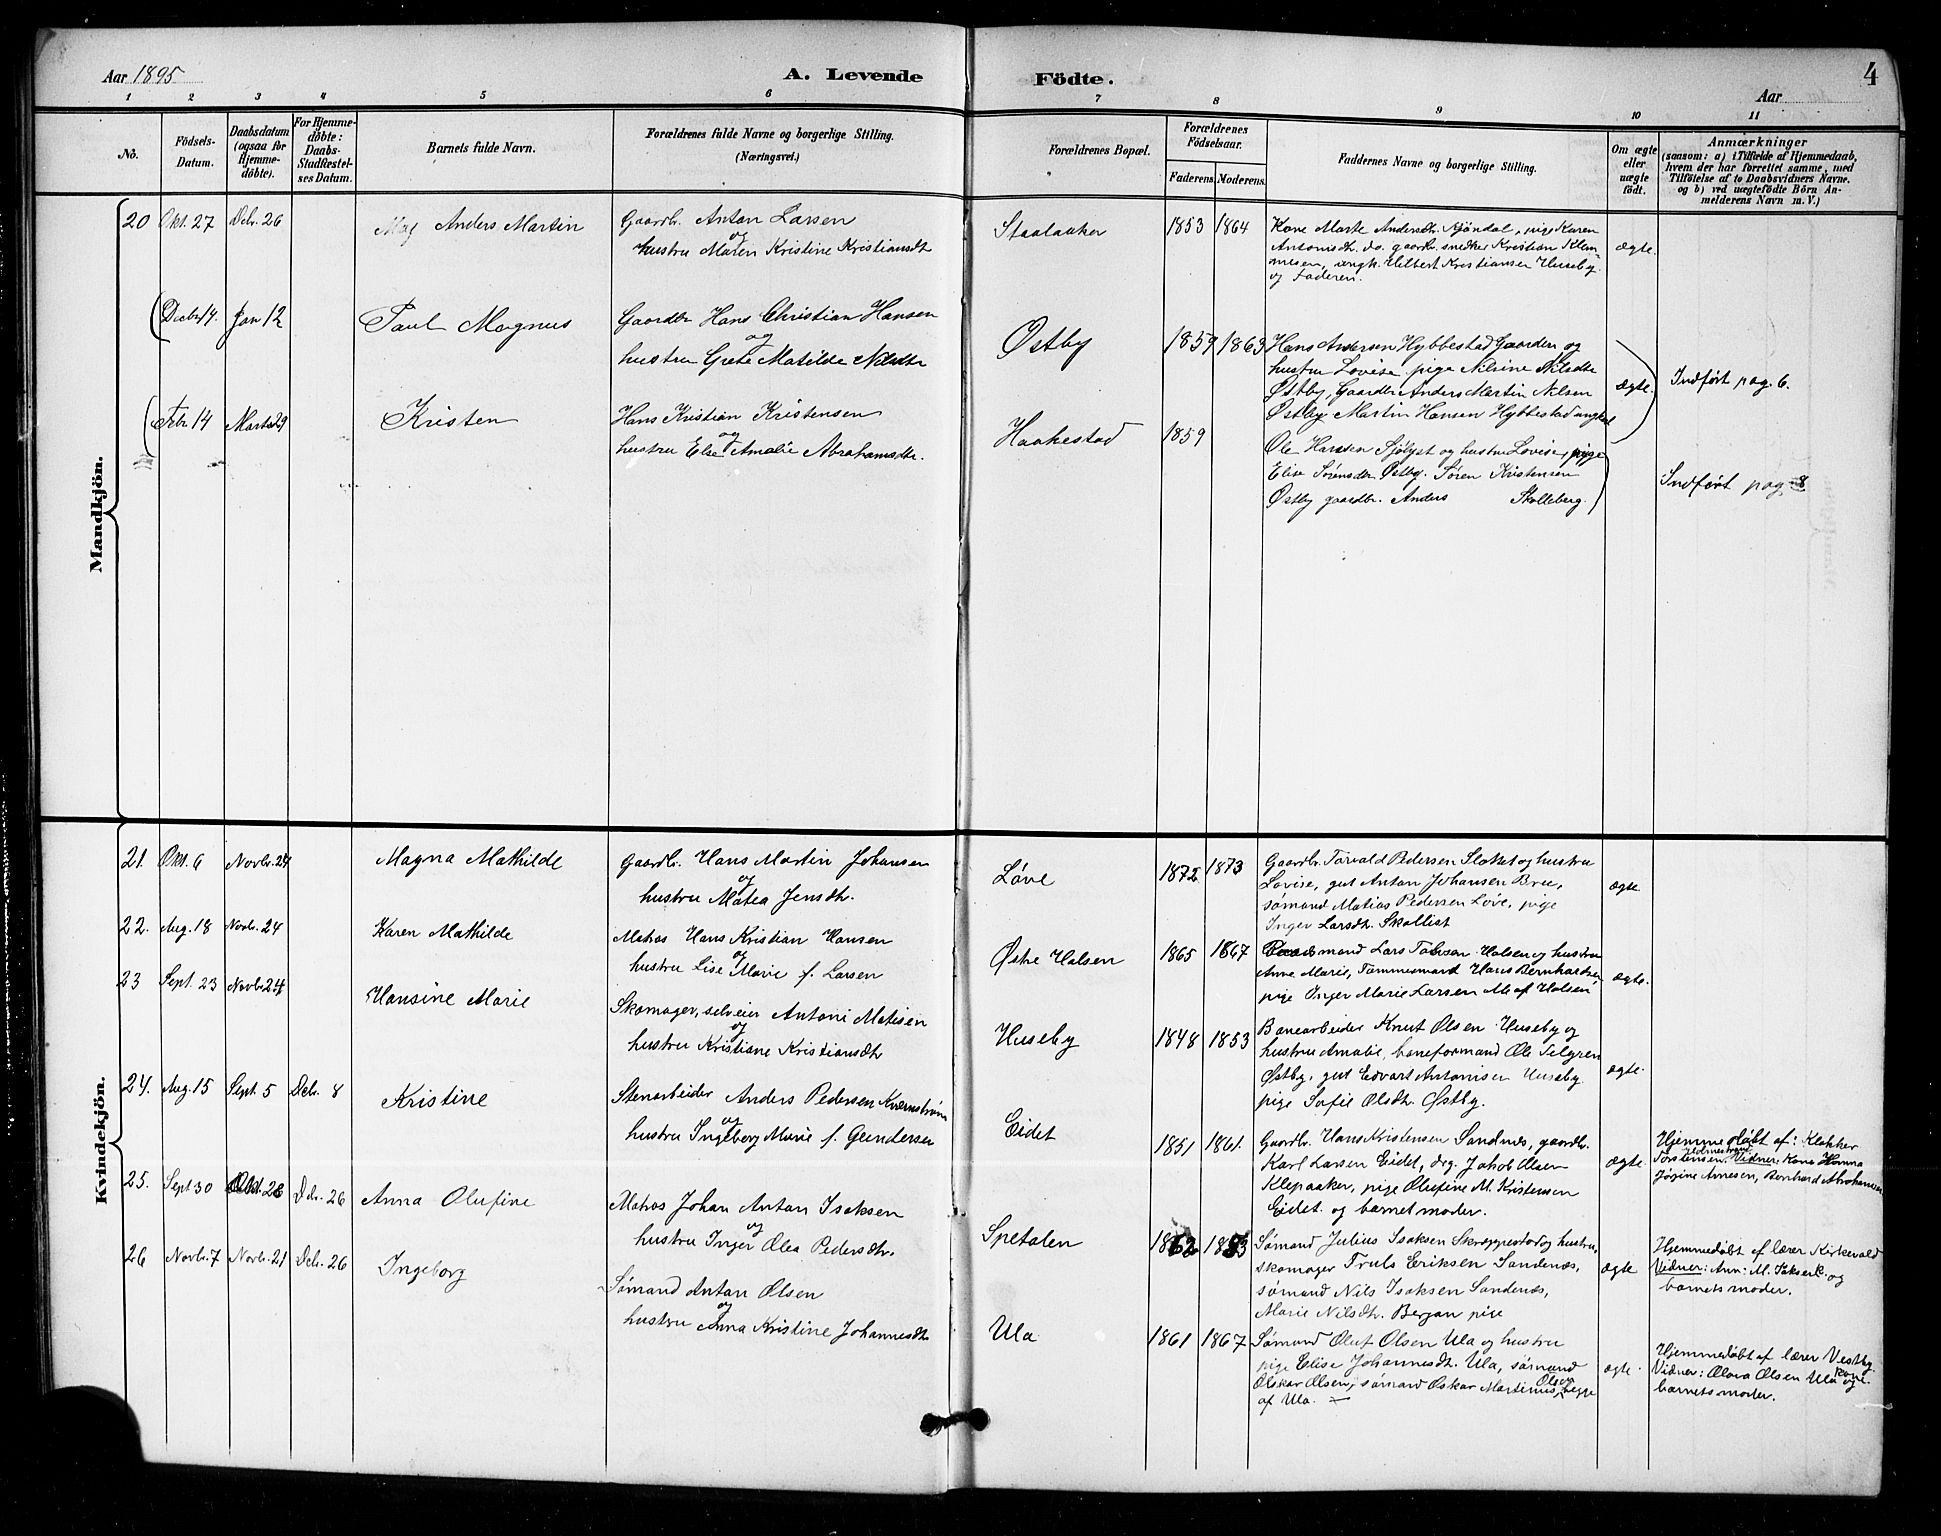 Aar 1895
A. Levende
Födte.
4
Aar
1 2 3 4 5 6 7 8 9 10 11
No.
Födsels-
Datum.
Daabsdatum
(ogsaa for
Hjemme-
döbte).
For Hjemme-
döbte:
Daabs-
Stadfæstel-
ses Datum.
Barnets fulde Navn.
Forældrenes fulde Navne og borgerlige Stilling.
(Næringsvei.)
Forældrenes Bopæl.
Forældrenes
Födselsaar.
Faderens. Moderens.
Faddernes Navne og borgerlige Stilling.
Om ægte
eller
uægte
födt.
Anmærkninger
(saasom: a) i Tilfælde af Hjemmedaab,
hvem der har forrettet samme, med
Tilföielse af to Daabsvidners Navne.
og b) ved uægtefödte Börn An-
melderens Navn m. V.)
Mandkjön.
20 Okt. 27 Debr. 26 Anders Martin
Gaardbr. Anton Larsen
og
hustru Maren Kristine Kristiansdt
Staalaaker 1853 1864
Kone Marte Andersdtr. pige Karen
Antonisdt. do. gaardbr. snedker Kristian Klem-
mesen, ungk. Hilbert Kristiansen Huseby
og Faderen.
ægte.
Decbr 14. Jan 12 Paul Magnus
Gaardbr Hans Christian Hansen
og
hustru Grete Matilde Nilsdtr
Østby 1859 1863
Hans Andersen Hybbestad Gaarden og
hustru Lovise, pige Nilsine Nilsdtr
Østby, Gaardbr Anders Martin Nilsen
Østby Martin Hansen Hybbestad ungkarl
ægte.
Indført pag. 6.
Febr 14 Marts 29 Kristen
Hans Kristian Kristensen
og
hustru Elise Amalie Abrahamsdtr.
Haakestad 1859
Ole Hansen Sjølyst og hustru Lovise, pige
Elise Sørensdtr Østby. Søren Kristensen
Østby gaardbr. Anders Skalleberg.
Indført pag. 8
Kvindekjön.
21. Okt. 6 Novbr. 24 Magna Mathilde
Gaardbr. Hans Martin Johansen
og
hustru Matea Jensdtr.
Løve 1872 1873
Gaardbr. Torvald Pedersen og hustru
Lovise, gut Anton Johansen Bree,
sømand Matias Pedersen Løve, pige
Inger Larsdt. Skallist
ægte
22. Aug. 18 Novbr. 24 Karen Mathilde
Matros Hans Kristian Hansen
og
hustru Lise Marie f. Larsen
Østre Halsen 1865 1867
Lars Halsen og hustru
Anne Marie, Tømmermand Hans Bernhardsen
pige Inger Marie Larsen Alle af Halsen
ægte.
23 Sept. 23 Novbr. 24 Hansine Marie
Skomager, selveier Antoni Matisen
og
hustru Kristiane Kristiansdtr
Huseby 1848 1853
Banearbeider Knut Olsen Huseby og
hustru Amalie, baneformand Ole Telgren
Østby, gut Edvart Antonisen Huseby
pige Sofie Olsdt. Østby.
ægte.
24. Aug. 15 Sept. 5 Debr. 8 Kristine
Stenarbeider Anders Pedersen Kværnstrøm
og
hustru Ingeborg Marie f. Gundersen
Eidet 1851 1861.
Gaardbr. Hans Kristensen Sandnæs, gaardbr.
Karl Larsen Eidet, drg. Jakob Olsen
Klepaaker, pige Olufine M. Kristensen
Eidet og barnet moder.
ægte
Hjemmedøbt af: Klokker
Torstensen. Vidner: Kone Hanna
Jørgine Arnesen, Bernhard Abrahamsen
25. Sept 30 Okt. 28 Debr. 26 Anna Olufine
Matros Johan Anton Isaksen
og
hustru Inger Olea Pedersdtr.
Spetalen 1862 1853
Sømand Julius Isaksen Skreppestad og hustru,
skomager Truls Eriksen Sandenæs,
sømand Nils Isaksen Sandenæs,
Marie Nilsdtr. Bergan pige
ægte
Hjemmedøbt af lærer Kirkevold
Vidner: Ann: M. Isaksen og
barnets moder.
26 Novbr. 7 Novbr. 21 Debr. 26 Ingeborg
Sømand Anton Olsen
og
hustru Anna Kristine Johannesdtr
Ula 1861 1867
Sømand Oluf Olsen Ula og hustru
pige Elise Johannesdt. Ula, sømand
Oskar Olsen, sømand Oskar Martinius Olsen, begge
af Ula.
ægte.
Hjemmedøbt af lærer Vestby.
Vidner: Olava Olsen Ula kone og
barnets moder.